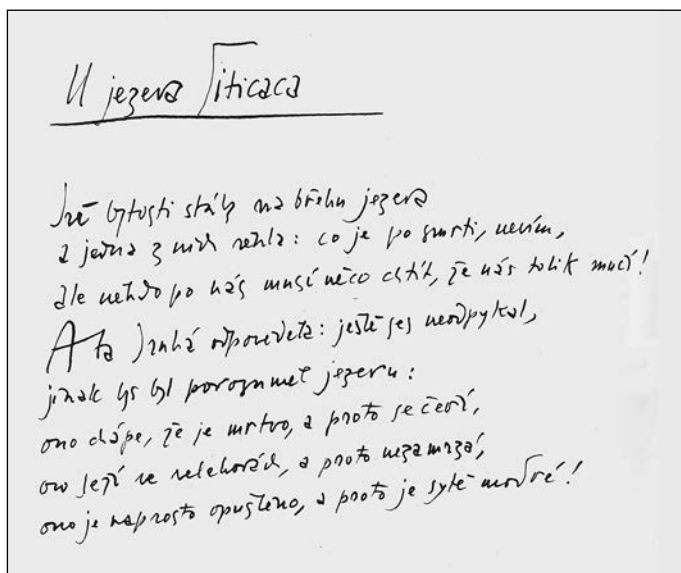 U jezera Titicaca
Dvě bytosti stály na břehu jezera
a jedna z nich řekla: co je po smrti, nevím,
ale někdo po nás musí něco chtít, že nás tolik mučí!
A ta druhá odpověděla: ještě jsi neodpykal,
jinak bys byl porozuměl jezeru:
ono chápe, že je mrtvo, a proto se čeří,
ono leží ve velehorách, a proto nezamrzá,
ono je naprosto opuštěno, a proto je sytě modré!